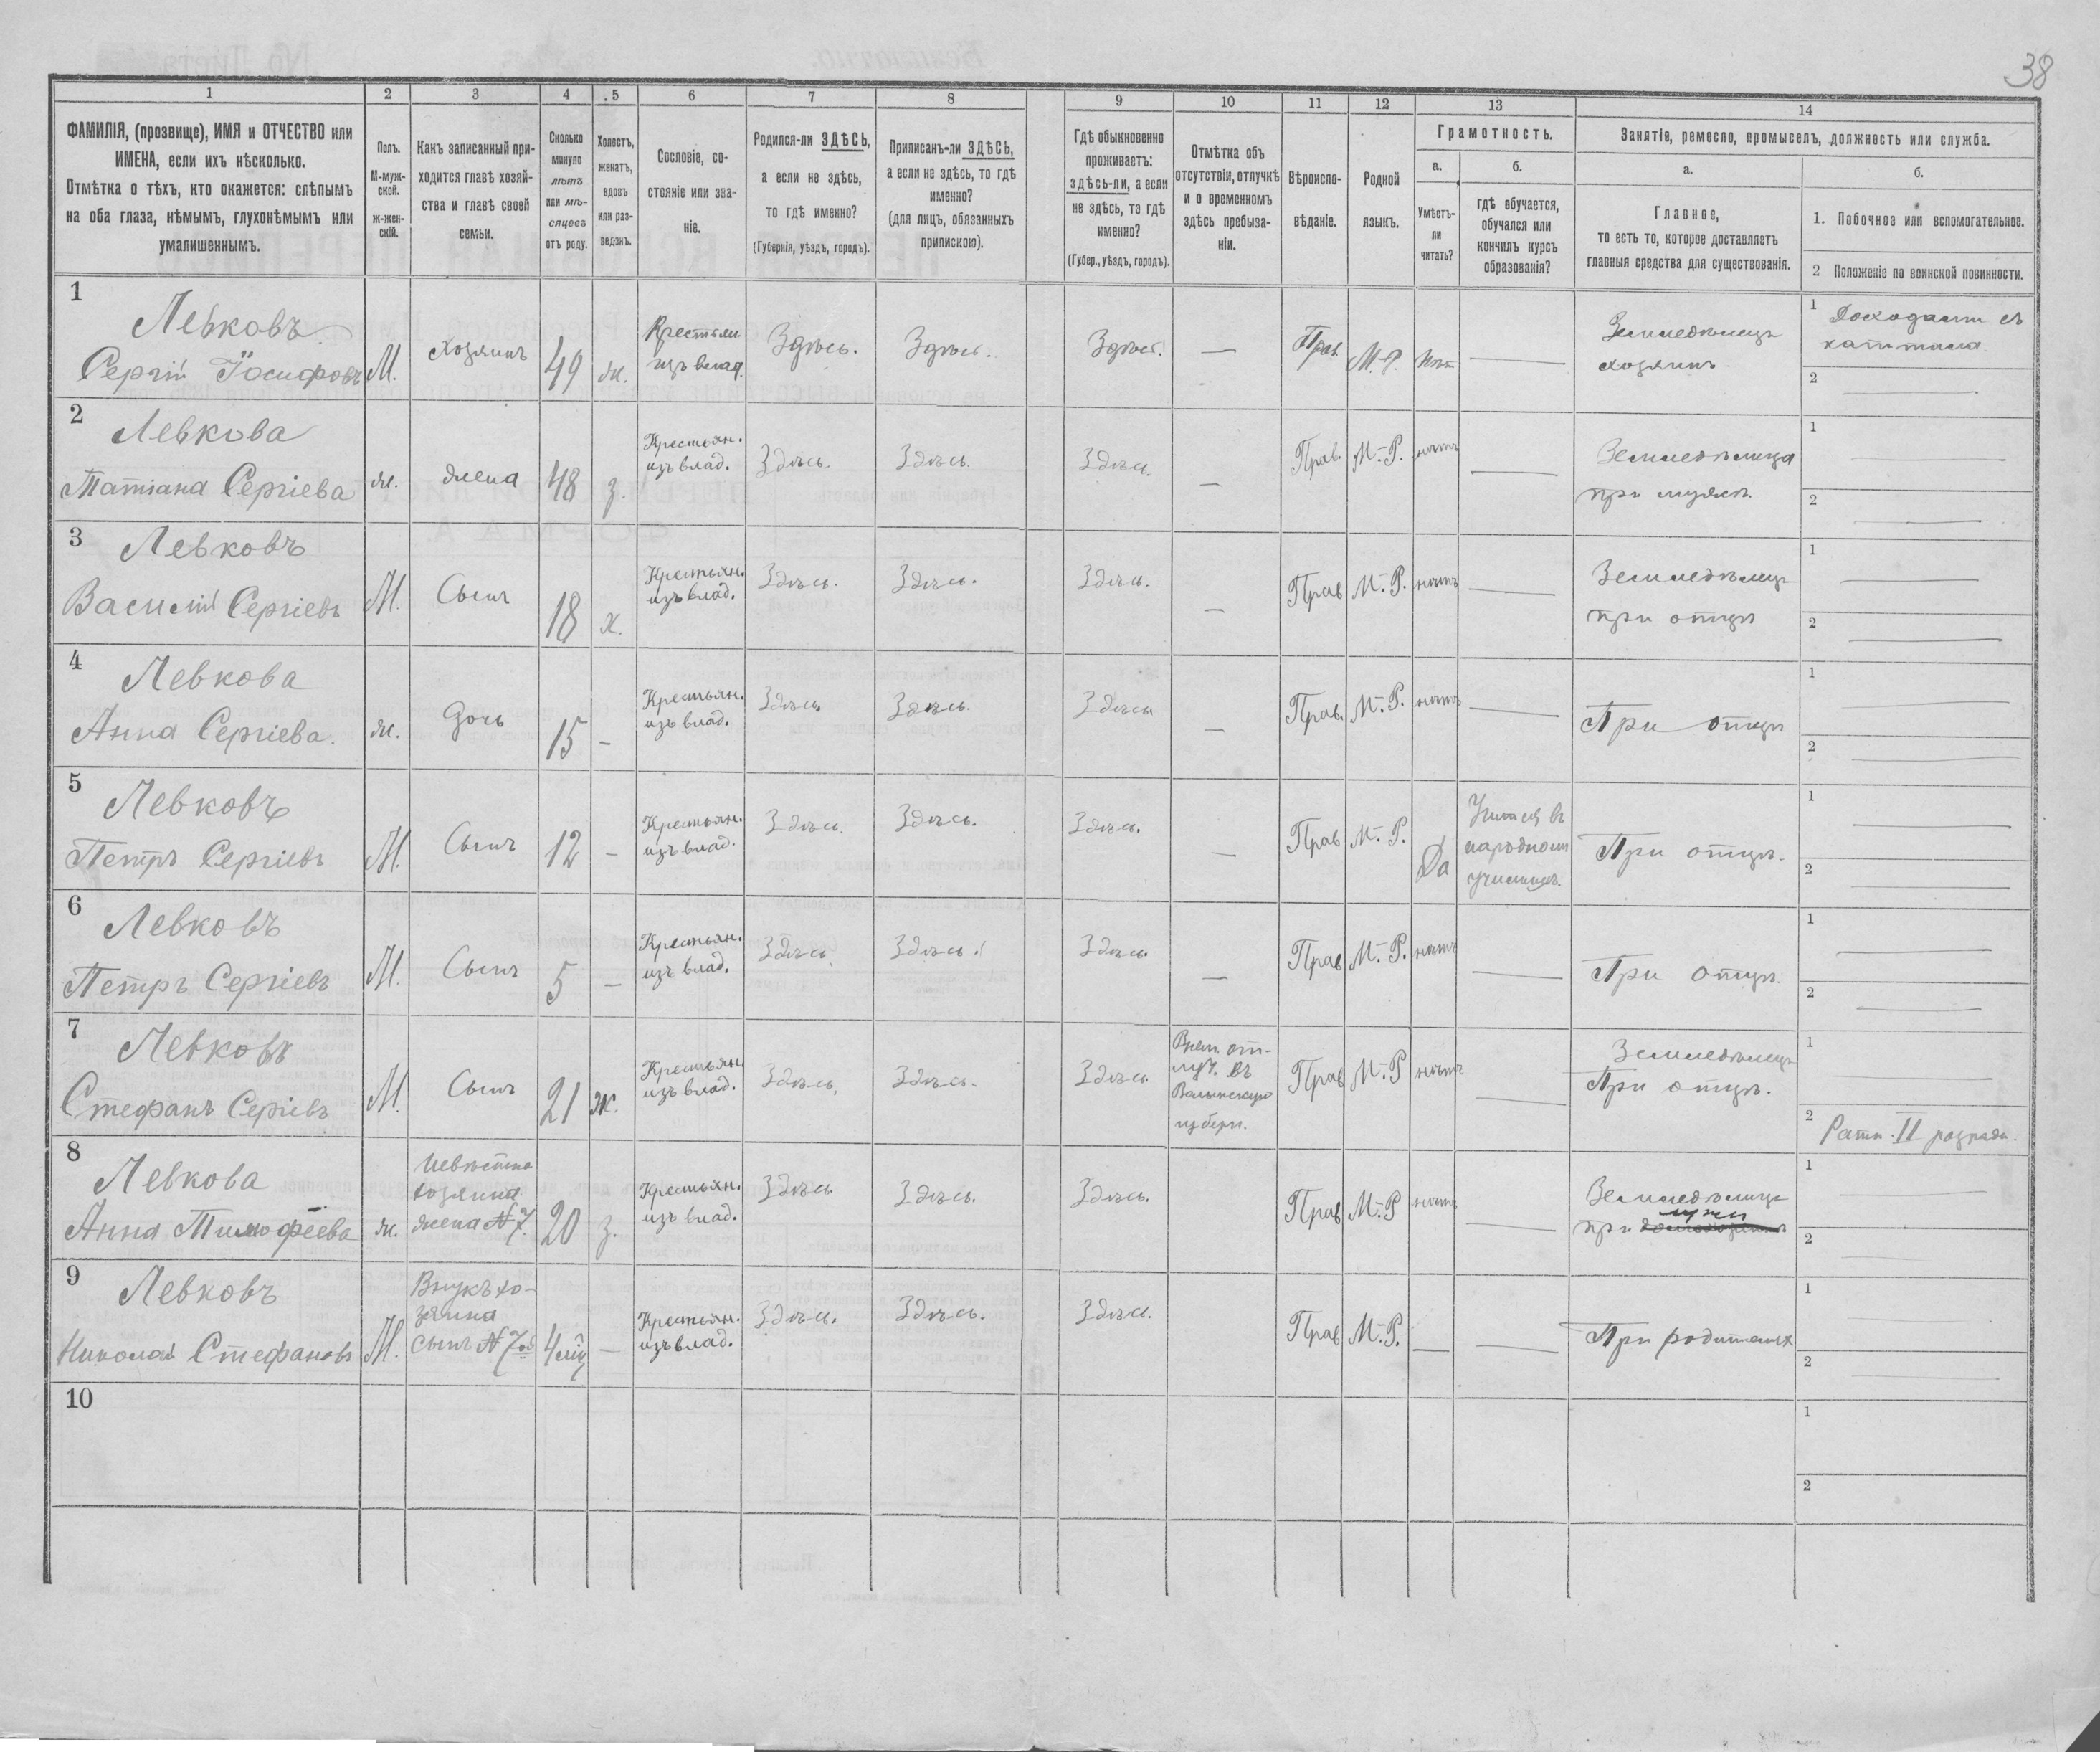 38
1 2 3 4 5 6 7 8 9 10 11 12 13 14
ФАМИЛІЯ, (прозвище), ИМЯ и ОТЧЕСТВО или
ИМЕНА, если ихъ нѣсколько.
Отмѣтка о тѣхъ, кто окажется: слѣпымъ
на оба глаза, нѣмымъ, глухонѣмымъ или
умалишеннымъ.
Полъ.
М-муж-
ской.
ж-жен-
скій.
Какъ записанный при-
ходится главѣ хозяй-
ства и главѣ своей
семьи.
Сколько
минуло
лѣтъ
или мѣ-
сяцевъ
отъ роду.
Холостъ,
женатъ,
вдовъ
или раз-
веденъ.
Сословіе, со-
стояніе или зва-
ніе.
Родился-ли ЗДѢСЬ,
а если не здѣсь,
то гдѣ именно?
(Губернія, уѣздъ, городъ).
Приписанъ-ли ЗДѢСЬ,
а если не здѣсь, то гдѣ
именно?
(для лицъ, обязанныхъ
припискою).
Гдѣ обыкновенно
проживаетъ:
здѣсь-ли, а если
не здѣсь, то гдѣ
именно?
(Губер., уѣздъ, городъ).
Отмѣтка объ
отсутствіи, отлучкѣ
и о временномъ
здѣсь пребыва-
ніи.
Вѣроиспо-
вѣданіе.
Родной
языкъ.
Грамотность.
а.
Умѣетъ-
ли
читать?
б.
гдѣ обучается,
обучался или
кончилъ курсъ
образованія?
Занятіе, ремесло, промыселъ, должность или служба.
а.
Главное,
то есть то, которое доставляетъ
главныя средства для существованія.
б.
1. Побочное или вспомогательное.
2 Положеніе по воинской повинности.
1
Левковъ
Сергій Іосифовъ
М.
Хозяинъ
49
ж.
Крестьян
изъ влад.
Здѣсь.
Здѣсь.
Здѣсь.
—
Прав.
М.-Р.
нѣт
—
Земледѣлецъ
хозяинъ
1
2 —
2
Левкова
Татіана Сергіева
ж.
жена
48
з.
Крестьян.
изъ влад.
Здѣсь.
Здѣсь.
Здѣсь.
—
Прав.
М.-Р.
нѣтъ
—
Земледѣлица
при мужѣ.
1 —
2 —
3
Левковъ
Василій Сергіевъ
М.
Сынъ
18
х.
Крестьян.
изъ влад.
Здѣсь.
Здѣсь.
Здѣсь.
—
Прав
М.-Р.
нѣтъ
—
Земледѣлецъ
при отцѣ
1 —
2 —
4
Левкова
Анна Сергіева.
ж.
Дочь
15
—
Крестьян.
изъ влад.
Здѣсь
Здѣсь.
Здѣсь
—
Прав.
М.-Р.
нѣтъ
—
При отцѣ
1 —
2 —
5
Левковъ
Петръ Сергіевъ
М.
Сынъ
12
—
Крестьян.
изъ влад.
Здѣсь.
Здѣсь.
Здѣсь.
—
Прав
М.-Р.
Да
Учится въ
народном
училищѣ.
При отцѣ.
1 —
2 —
6
Левковъ
Петръ Сергіевъ
М.
Сынъ
5
—
Крестьян.
изъ влад.
Здѣсь
Здѣсь.
Здѣсь.
—
Прав
М.-Р.
нѣтъ
—
При отцѣ.
1 —
2 —
7
Левковъ
Стефанъ Сергіевъ
М.
Сынъ
21
ж.
Крестьян.
изъ влад.
Здѣсь.
Здѣсь.
Здѣсь
Врем. от-
луч. въ
Волынскую
губерн.
Прав
М.-Р
нѣтъ
—
Земледѣлецъ
При отцѣ.
1 —
2 Ратн. II разряда.
8
Левкова
Анна Тимофѣева
ж.
Невѣстка
хозяина
жена № 7.
20
з.
Крестьян.
изъ влад.
Здѣсь.
Здѣсь.
Здѣсь.
Прав
М.-Р
нѣтъ
—
Земледѣлица
при мужѣ
1 —
2 —
9
Левковъ
Николай Стефановъ
М.
Внукъ хо-
зяина
сынъ № 7го
4 мѣс
—
Крестьян.
изъ влад.
Здѣсь.
Здѣсь.
Здѣсь.
Прав
М.-Р.
—
—
При родителях
1 —
2 —
10
1
2